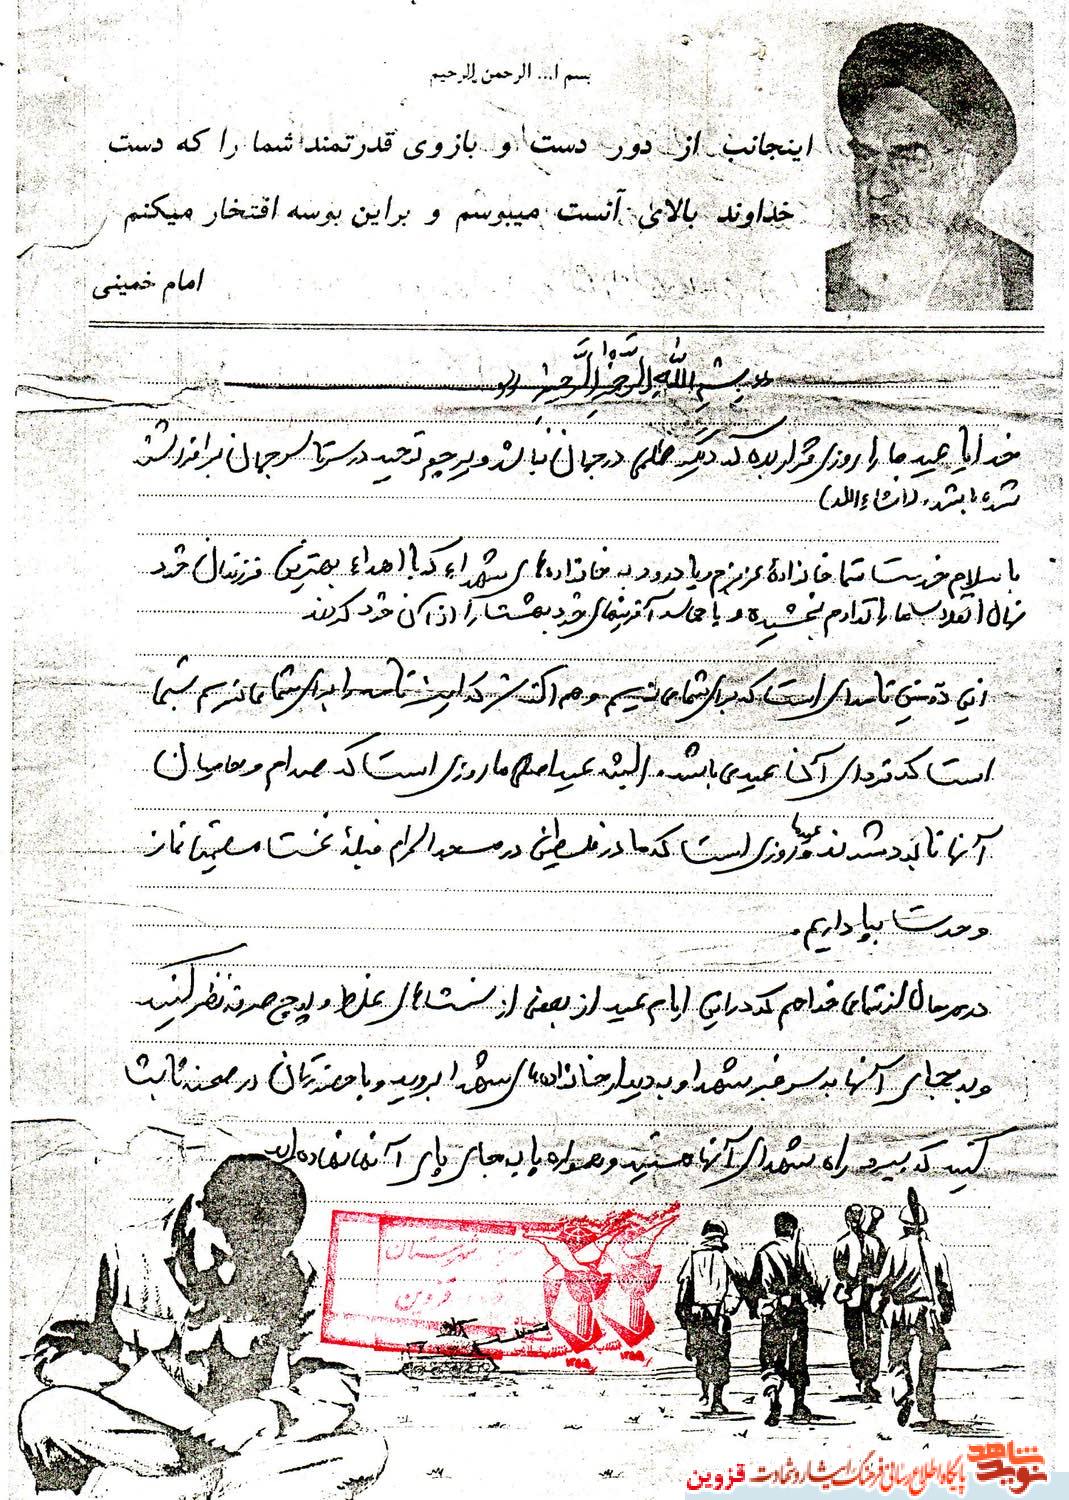 بسم ا... الرحمن الرحیم
اینجانب از دور دست و بازوی قدرتمند شما را که دست
خداوند بالای آنست میبوسم و براین بوسه افتخار میکنم
امام خمینی
بسم الله الرحمن الرحیم
خدایا عید ما را روزی قرار بده که دیگر ظلمی در جهان نباشد و پرچم توحید در سرتاسر جهان برافراشته
شده باشد. (انشاءالله)
با سلام خدمت شما خانوادۀ عزیزم و با درود به خانواده های شهداء که با اهداء بهترین فرزندان خود
نهال انقلاب ما را تداوم بخشیده و با حماسه آفرینیهای خود بهشت را از آن خود کردند
این دومین نامه‌ای است که برای شما می نویسم و هم اکنون که این نامه را برای شما می نویسم شبی
است که فردای آن عید می باشد. البته عید اصلی ما روزی است که صدام و حامیان
آنها نابود شدند و عید ما روزی است که ما در فلسطین در مسجد الحرام قبلۀ نخست مسلمین نماز
وحدت بپا داریم.
در هر حال از شما می خواهم که در این ایام عید از بعضی از سنت های غلط و پوچ صرفنظر کنید
و به جای آنها به سر قبر شهدا و به دیدار خانواده های شهدا بروید و با حضورتان در صحنه ثابت
کنید که پیرو راه شهدای آنها هستید و همواره پا به جای پای آنها نهاده اید
شهرستان
قزوین
۱۳۵۹
۱۳۵۹
نوید شاهد
پایگاه اطلاع رسانی فرهنگ ایثار و شهادت قزوین